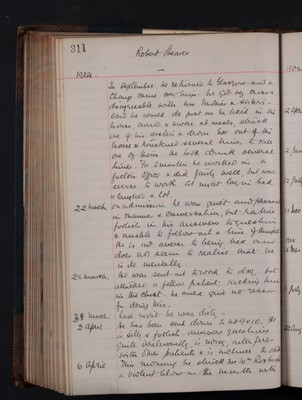 311
Robert Shearer
1902.
In September he returned to Glasgow and a
change came over him. he got very cross &
disagreeable with his mother & sisters -
said he would do just as he liked in the
house, cursed & swore at meals, struck
one of his sisters & drove her out of the
house & threatened several times to kill
one of them. He took drunk several
times. For 2 months he worked in a
factor's office & did fairly well, but was
averse to work. At night lay in bed
& laughed a lot.
22 March. On admission he was quiet and pleasant
in manner & conversation, but rather
foolish in his answers to questions
& unable to follow out a line of thought.
He is not averse to being here and
does not seem to realise that he
is ill mentally.
28 March. He was sent out to work to day, but
attacked a fellow patient, kicking him
in the chest. he could give no reason
for doing this.
Last night he was dirty.
2 April. He has been sent down to
is silly & foolish. answers questions
quite irrelevantly, is noisy, interferes
with other patients & is inclined to
6 April. This morning he struck
a violent blow on the mouth with